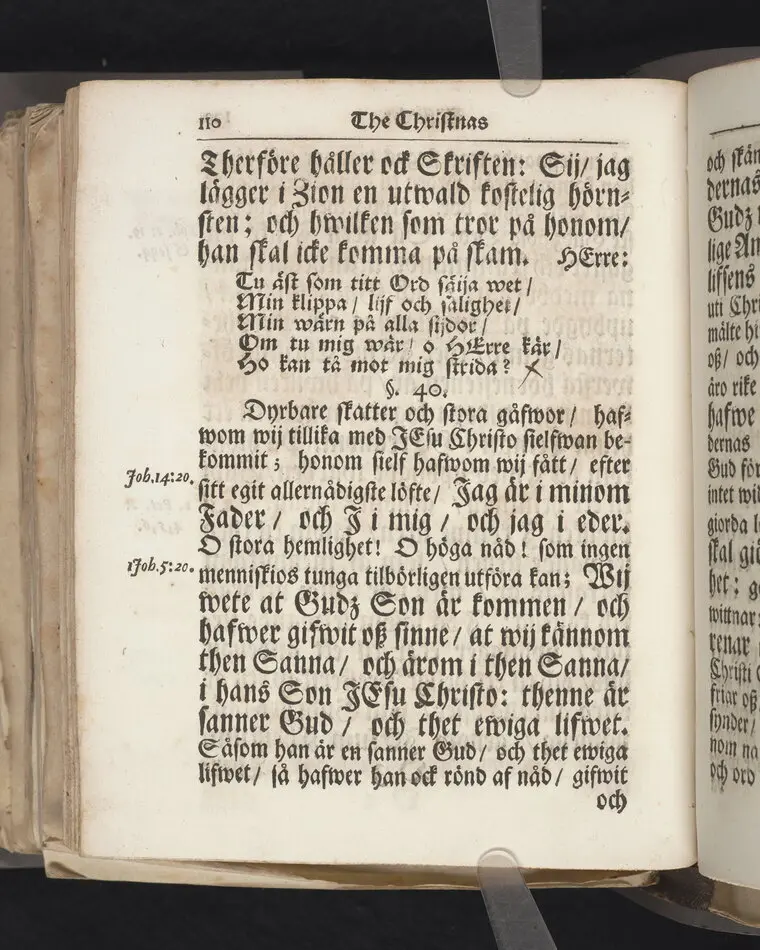 110 The Christnas
Therföre håller ock Skriften: Sij/ jag
lägger i Zion en utwald kostelig hörn-
sten; och hwilken som tror på honom/
han skal icke komma på skam. HErre:
Tu äst som titt Ord säija wet/
Min klippa/ lijf och salighet/
Min wärn på alla sijdor/
Om tu mig wär/ o HErre kär/
Ho kan tå mot mig strida?
§. 40.
Dyrbare skatter och stora gåfwor/ haf-
wom wij tillika med JEsu Christo sielfwan be-
kommit; honom sielf hafwom wij fått/ efter
Joh. 14:20. sitt egit allernådigste löfte/ Jag är i minom
Fader/ och J i mig/ och jag i eder.
O stora hemlighet! O höga nåd! som ingen
1 Joh. 5:20. menniskios tunga tilbörligen utföra kan; Wij
wete at Gudz Son är kommen/ och
hafwer gifwit oß sinne/ at wij kännom
then Sanna/ och ärom i then Sanna/
i hans Son JEsu Christo: thenne är
sanner Gud/ och thet ewiga lifwet.
Såsom han är en sanner Gud/ och thet ewiga
lifwet/ så hafwer han ock rönd af nåd/ gifwit
och
och skän
dernas
Gudz
lige An
lifsens
uti Chri
målte hi
oß/ och
äro rike
hafwe
dernas
Gud för
intet wil
giorda l
skal gi
het: g
wittnar:
renar
Christi
friar oß
synder/
nom na
och ord